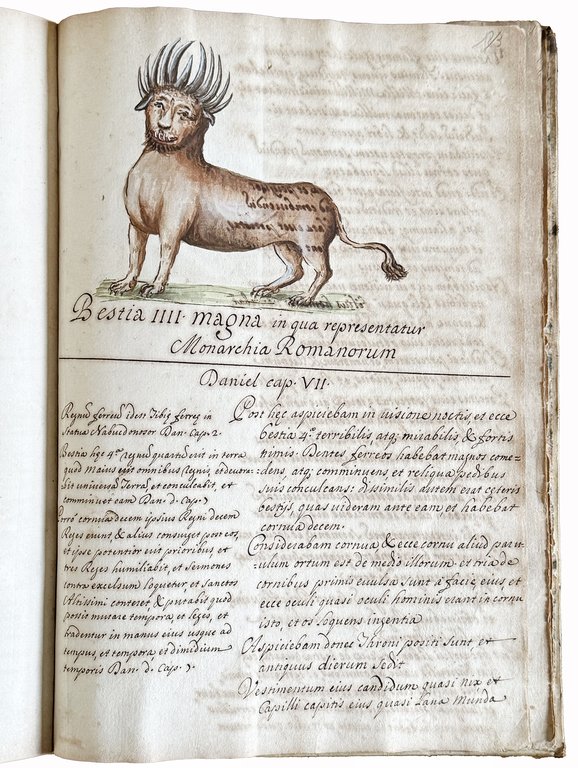 Bestia IIII. magna in qua representatur
Monarchia Romanorum
Daniel cap. VII.
Regnū ferreū idest Tibię ferreę in
Statua Nabucdonosor Dan. Cap. 2.
Bestia hęc 4ª. regnū quartū erit in terra
quod maius erit omnibus Regnis, et devora-
bit universā Terrā, et conculcabit, et
comminuet eam Dan. d. Cap. 7
Porro cornua decem ipsius Regni decem
Reges erunt, & alius consurget post eos,
et ipse potentior erit prioribus, et
tres Reges humiliabit, et Sermones
contra excelsum loquetur, et Sanctos
Altissimi conteret, & putabit quod
possit mutare tempora, et leges, et
tradentur in manus eius usque ad
tempus, et tempora, et dimidium
temporis Dan. d. Cap. 7.
Post hęc aspiciebam in visione noctis, et ecce
bestia 4ª. terribilis, atq; mirabilis, & fortis
nimis. Dentes ferreos habebat magnos come-
dens, atq; comminuens, et reliqua pedibus
suis conculcans: dissimilis autem erat cęteris
bestijs, quas videram ante eam et habebat
cornua decem.
Considerabam cornua, & ecce cornu aliud parvu
culum ortum est de medio illorum: et tria de
cornibus primis evulsa sunt à facie eius et
ecce oculi quasi oculi hominis erant in cornu
isto, et os loquens ingentia
Aspiciebam donec Throni positi sunt, et
antiquus dierum Sedit
Vestimentum eius candidum quasi nix et
Capilli capitis eius quasi Lana munda